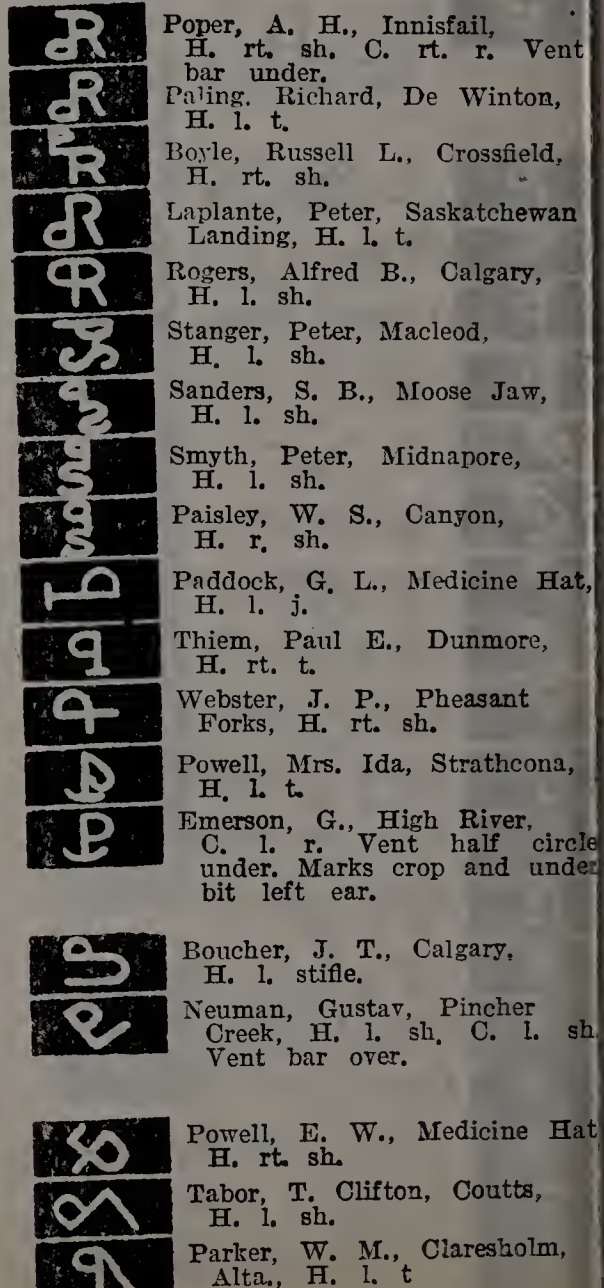 Poper, A. H., Innisfail,
H. rt. sh. C. rt. r. Vent
bar under.
Paling. Richard, De Winton,
H. l. t.
Boyle, Russell L., Crossfield,
H. rt. sh.
Laplante, Peter, Saskatchewan
Landing, H. l. t.
Rogers, Alfred B., Calgary,
H. l. sh.
Stanger, Peter, Macleod,
H. l. sh.
Sanders, S. B., Moose Jaw,
H. l. sh.
Smyth, Peter, Midnapore,
H. l. sh.
Paisley, W. S., Canyon,
H. r. sh.
Paddock, G. L., Medicine Hat,
H. l. j.
Thiem, Paul E., Dunmore,
H. rt. t.
Webster, J. P., Pheasant
Forks, H. rt. sh.
Powell, Mrs. Ida, Strathcona,
H. l. t.
Emerson, G., High River,
C. l. r. Vent half circle
under. Marks crop and under
bit left ear.
Boucher, J. T., Calgary,
H. l. stifle.
Neuman, Gustav, Pincher
Creek, H. l. sh, C. l. sh.
Vent bar over.
Powell, E. W., Medicine Hat
H. rt. sh.
Tabor, T. Clifton, Coutts,
H. l. sh.
Parker, W. M., Claresholm,
Alta., H. l. t